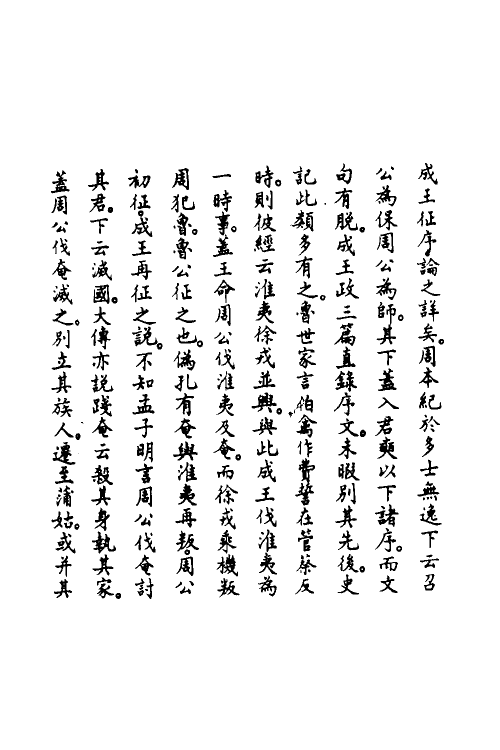 成王征序論之詳矣。周本紀於多士無逸下云召
公為保周公為師。其下蓋入君奭以下諸序。而文
句有脫。成王政三篇直錄序文。未暇別其先後。史
記此類多有之。魯世家言伯禽作費誓在管蔡反
時。則彼經云淮夷徐戎並興。與此成王伐淮夷為
一時事。蓋王命周公伐淮夷及奄。而徐戎乘機叛
周犯魯。魯公征之也。偽孔有奄與淮夷再叛。周公
初征。成王再征之說。不知孟子明言周公伐奄討
其君。下云滅國。大傳亦說踐奄云殺其身執其家。
蓋周公伐奄滅之。別立其族人。遷至蒲姑。或并其